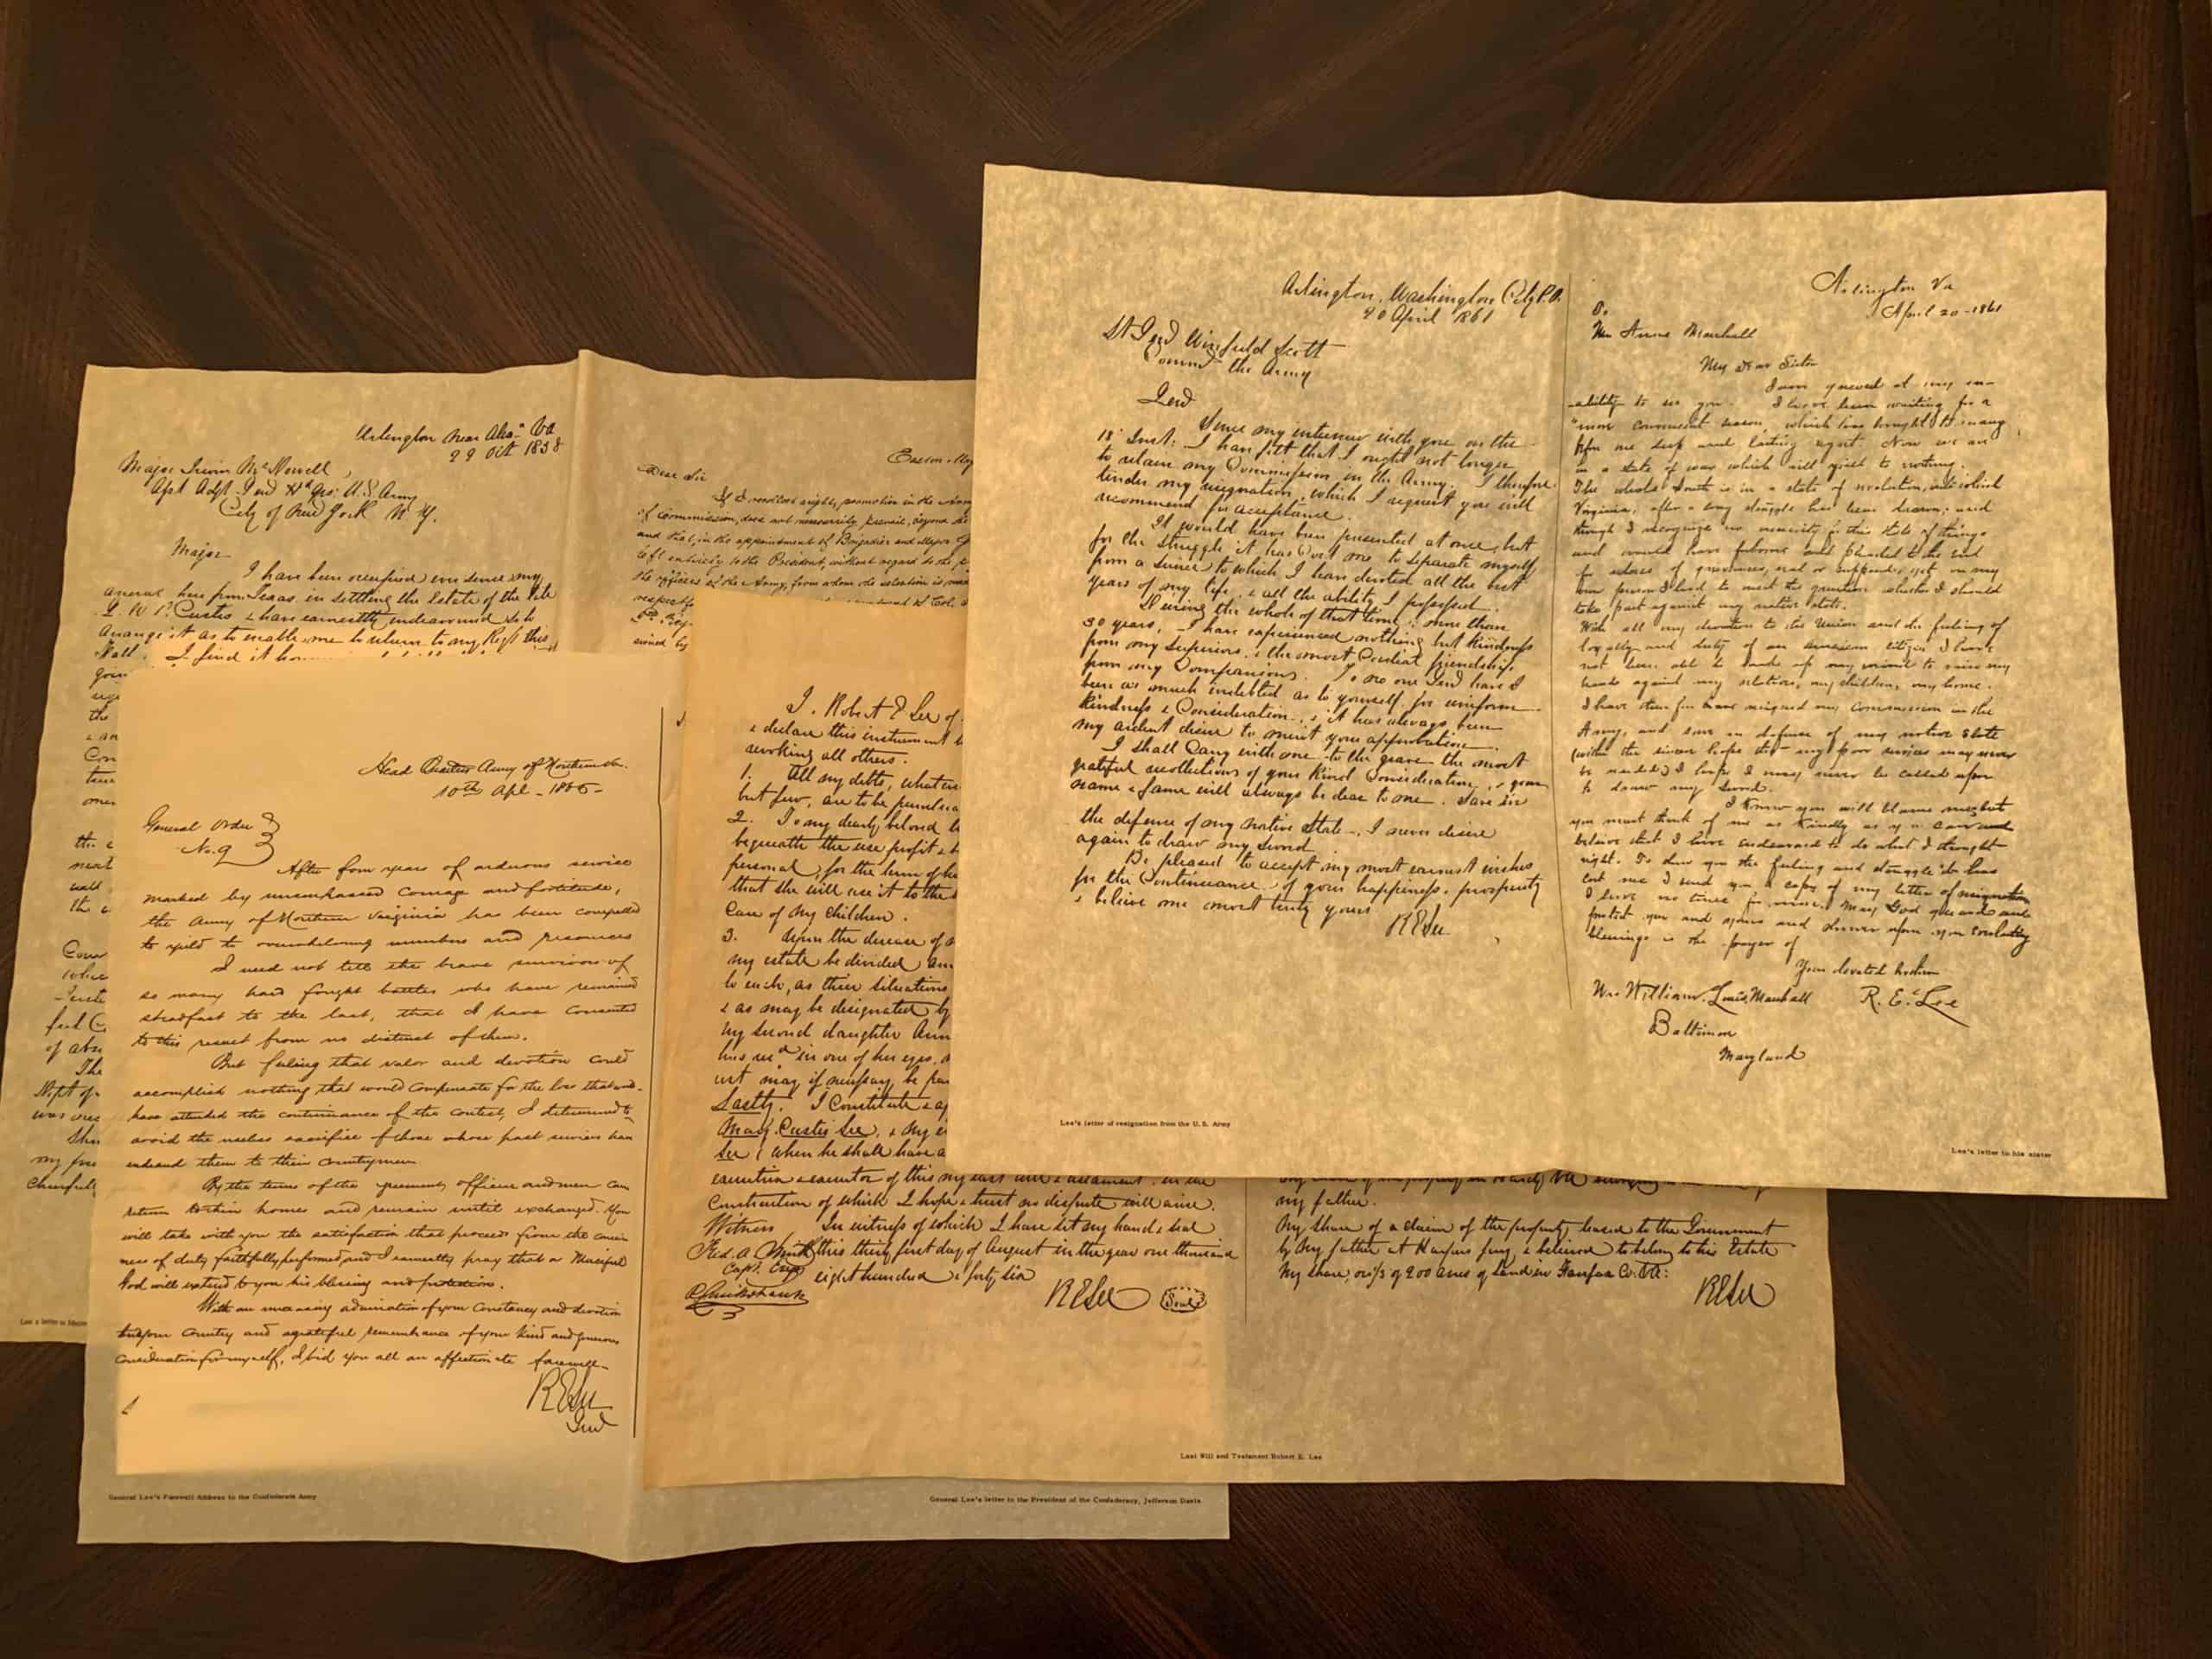 Arlington, Washington City P.O.
20 April 1861
Lt Genl Winfield Scott
Commd the Army
Genl
Since my interview with you on the
18 Inst: I have felt that I ought not longer
to retain my Commission in the Army. I therefore
tender my resignation, which I request you will
recommend for acceptance.
It would have been presented at once, but
for the struggle it has Cost me to separate myself
from a Service to which I have devoted all the best
years of my life, & all the ability I possessed.
During the whole of that time, more than
30 years, I have experienced nothing but kindness
from my superiors, & the most Cordial friendship
from my Companions. To no one Genl have I
been as much indebted as to yourself for uniform
kindness & Consideration, & it has always been
my ardent desire to merit your approbation.
I shall Carry with me to the grave the most
grateful recollections of your kind Consideration, & your
name & fame will always be dear to me. Save in
the defence of my native State, I never desire
again to draw my sword.
Be pleased to accept my most earnest wishes
for the Continuance of your happiness & prosperity
& believe me most truly yours
R E Lee
Lee's letter of resignation from the U.S. Army
Arlington Va
April 20-1861
Mrs Anne Marshall
My dear Sister
I am grieved at my in-
-ability to see you. I have been waiting for a
"more convenient season, which has brought to many
before me deep and lasting regret. Now we are
in a state of war which will yield to nothing.
The whole South is in a state of revolution, into which
Virginia, after a long struggle has been drawn; and
though I recognize no necessity for this state of things
and would have forborne and pleaded to the end
for redress of grievances, real or supposed, yet in my
own person I had to meet the question whether I should
take part against my native state.
With all my devotion to the Union and the feeling of
loyalty and duty of an American citizen, I have
not been able to make up my mind to raise my
hand against my relatives, my children, my home.
I have therefore resigned my Commission in the
Army, and save in defense of my native State
(with the sincere hope that my poor services may never
be needed) I hope I may never be called upon
to draw my sword.
I know you will blame me, but
you must think of me as kindly as you can and
believe that I have endeavored to do what I thought
right. To show you the feeling and struggle it has
cost me I send you a copy of my letter of resignation
I have no time for more. May God guard and
protect you and yours and shower upon you everlasting
blessings is the prayer of
Your devoted brother
R. E. Lee
Mrs. William Louis Marshall
Baltimore
Maryland
Lee's letter to his sister
Arlington near Alexa Va
29 Oct 1858
Major Irwin McDowell
Asst Adjt Genl Hd Qrs: U.S. Army
City of New York N.Y.
Major
I have been occupied ever since my
arrival here from Texas in settling the Estate of the late
G. W. P. Curtis & have earnestly endeavoured so to
arrange it as to enable me to return to my Regt this
Fall. I find it
Dear Sir
If I recollect right, promotion in the Army
of Commission, does not necessarily prevail, beyond the
and that, in the appointment of Brigadier and Major G
left entirely to the President, without regard to the
the officers of the Army, from whom the selection is
Head Quarters Army of Northern Va.
10th Apl - 1865-
General Order
No. 9
After four years of arduous service
marked by unsurpassed courage and fortitude,
the Army of Northern Virginia has been compelled
to yield to overwhelming numbers and resources
I need not tell the brave survivors of
so many hard fought battles who have remained
steadfast to the last, that I have consented
to this result from no distrust of them.
But feeling that valor and devotion could
accomplish nothing that would compensate for the loss that wd.
have attended the continuance of the contest, I determined to
avoid the useless sacrifice of those whose past services have
endeared them to their Countrymen
By the terms of the agreement, officers and men can
return to their homes and remain until exchanged. You
will take with you the satisfaction that proceeds from the conscious
ness of duty faithfully performed and I earnestly pray that a Merciful
God will extend to you his blessing and protection.
With an unceasing admiration of your Constancy and devotion
to your Country and a grateful remembrance of your kind and generous
consideration for myself, I bid you all an affectionate farewell-
R E Lee
Genl
General Lee's Farewell Address to the Confederate Army
I. Robert E Lee of
& declare this instrument
revoking all others.
1. All my debts, whatever
but few, are to be
2. To my dearly beloved
bequeathe the use profit &
personal, for the term of her
that she will use it to the
Care of my children.
3. Upon the decease of
my estate be divided
to each, as their situations
& as may be designated by
my second daughter Ann
in one of her eyes,
may if necessary, be
Lastly. I Constitute & ap
Mary Custis Lee, & my
Lee (when he shall have a
executrix & executor of this my last will & testament, in the
Construction of which I hope & trust no dispute will arise.
Witness In witness of which I have set my hand & seal
Fred. A Smith this thirty first day of August in the year one thousand
Capt. Engs eight hundred & forty six
R Cruikshank
R E Lee Seal
my father.
My share of a claim of the property leased to the Government
by my father at Harpers ferry, & believed to belong to his Estate
My share, of 200 acres of land in Fairfax Co. Va:
R E Lee
Last Will and Testament Robert E. Lee
General Lee's letter to the President of the Confederacy, Jefferson Davis